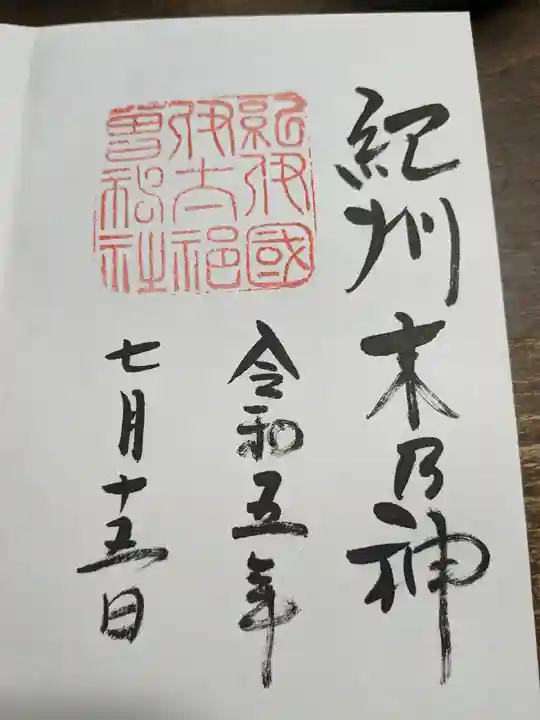 紀州木乃神
紀伊國
伊太祁
曾神社
令和五年
七月十五日